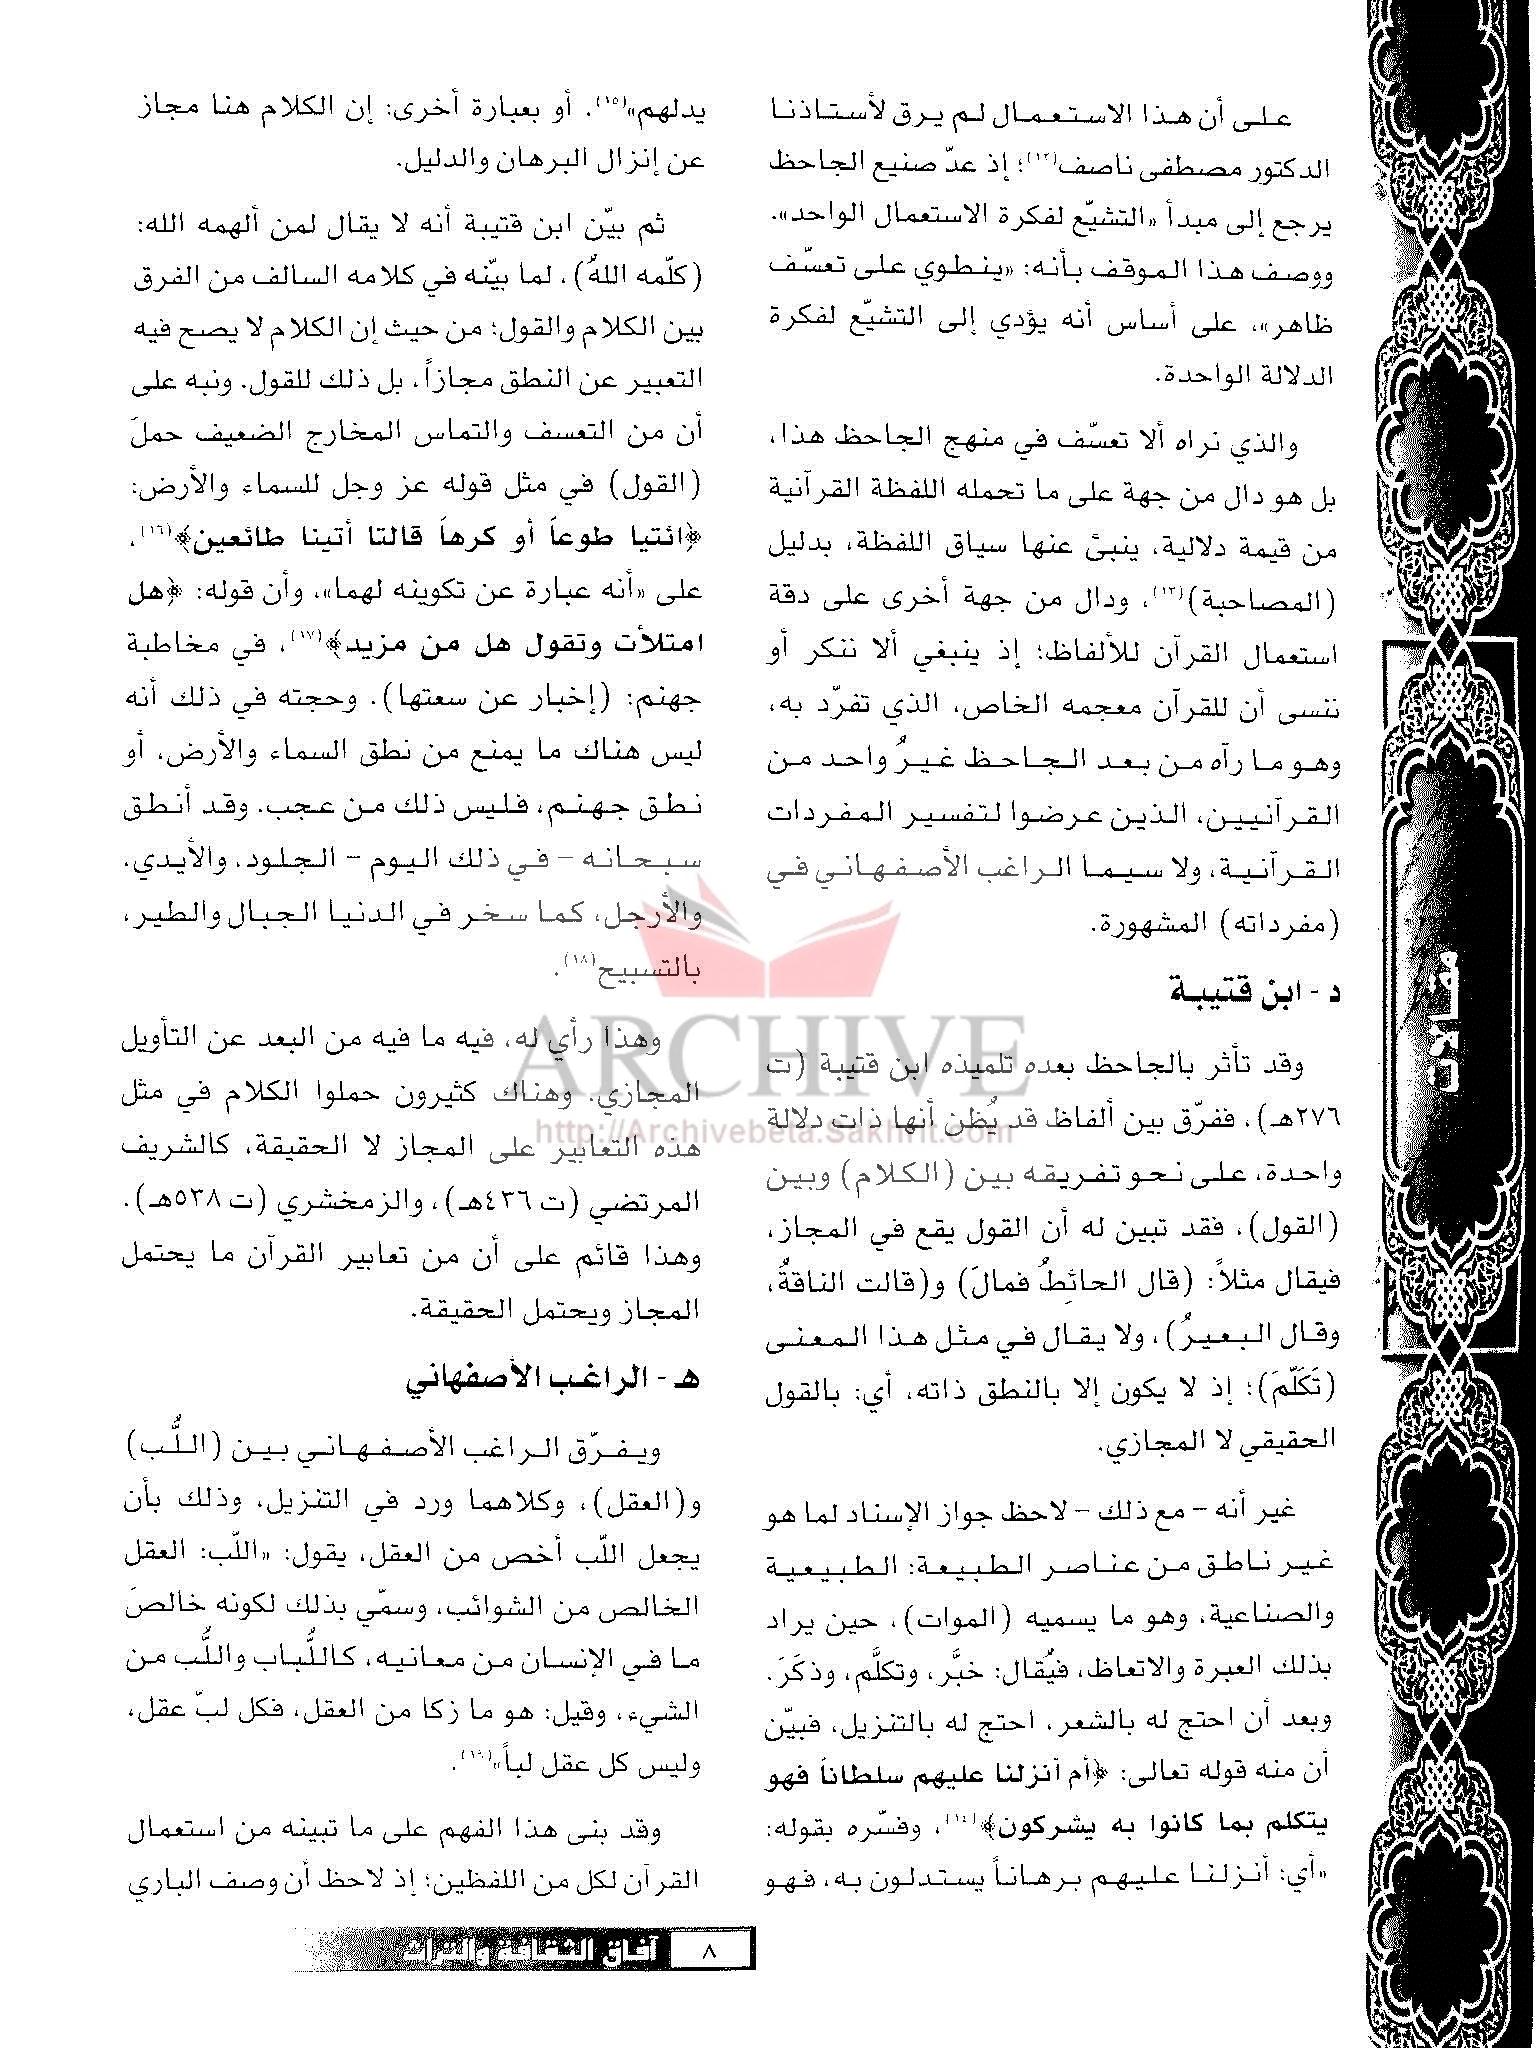 على أن هذا الاستعمال لم يرق لأستاذنا
الدكتور مصطفى ناصف(١٢)؛ إذ عدّ صنيع الجاحظ
يرجع إلى مبدأ «التشيّع لفكرة الاستعمال الواحد».
ووصف هذا الموقف بأنه: «ينطوي على تعسّف
ظاهر»، على أساس أنه يؤدي إلى التشيّع لفكرة
الدلالة الواحدة.
والذي نراه ألا تعسّف في منهج الجاحظ هذا،
بل هو دال من جهة على ما تحمله اللفظة القرآنية
من قيمة دلالية، ينبئ عنها سياق اللفظة، بدليل
(المصاحبة)(١٣)، ودال من جهة أخرى على دقة
استعمال القرآن للألفاظ؛ إذ ينبغي ألا ننكر أو
ننسى أن للقرآن معجمه الخاص، الذي تفرّد به،
وهو ما رآه من بعد الجاحظ غيرُ واحد من
القرآنيين، الذين عرضوا لتفسير المفردات
القرآنية، ولا سيما الراغب الأصفهاني في
(مفرداته) المشهورة.
د - ابن قتيبة
وقد تأثر بالجاحظ بعده تلميذه ابن قتيبة (ت
٢٧٦هـ)، ففرّق بين ألفاظ قد يُظن أنها ذات دلالة
واحدة، على نحو تفريقه بين (الكلام) وبين
(القول)، فقد تبين له أن القول يقع في المجاز،
فيقال مثلاً: (قال الحائِطُ فمالَ) و(قالت الناقةُ،
وقال البعيرُ)، ولا يقال في مثل هذا المعنى
(تَكَلّمَ)؛ إذ لا يكون إلا بالنطق ذاته، أي: بالقول
الحقيقي لا المجازي.
غير أنه - مع ذلك - لاحظ جواز الإسناد لما هو
غير ناطق من عناصر الطبيعة: الطبيعية
والصناعية، وهو ما يسميه (الموات)، حين يراد
بذلك العبرة والاتعاظ، فيُقال: خبَّر، وتكلَّم، وذكَرَ.
وبعد أن احتج له بالشعر، احتج له بالتنزيل، فبيّن
أن منه قوله تعالى: ﴿أم أنزلنا عليهم سلطاناً فهو
يتكلم بما كانوا به يشركون﴾(١٤)، وفسّره بقوله:
«أي: أنزلنا عليهم برهاناً يستدلون به، فهو
يدلهم»(١٥). أو بعبارة أخرى: إن الكلام هنا مجاز
عن إنزال البرهان والدليل.
ثم بيّن ابن قتيبة أنه لا يقال لمن ألهمه الله:
(كلّمه اللهُ)، لما بيّنه في كلامه السالف من الفرق
بين الكلام والقول؛ من حيث إن الكلام لا يصح فيه
التعبير عن النطق مجازاً، بل ذلك للقول. ونبه على
أن من التعسف والتماس المخارج الضعيف حملَ
(القول) في مثل قوله عز وجل للسماء والأرض:
﴿ائتيا طوعاً أو كرهاً قالتا أتينا طائعين﴾(١٦)،
على «أنه عبارة عن تكوينه لهما»، وأن قوله: ﴿هل
امتلأت وتقول هل من مزيد﴾(١٧)، في مخاطبة
جهنم: (إخبار عن سعتها). وحجته في ذلك أنه
ليس هناك ما يمنع من نطق السماء والأرض، أو
نطق جهنم، فليس ذلك من عجب. وقد أنطق
سبحانه - في ذلك اليوم - الجلود، والأيدي،
والأرجل، كما سخر في الدنيا الجبال والطير،
بالتسبيح(١٨).
وهذا رأي له، فيه ما فيه من البعد عن التأويل
المجازي. وهناك كثيرون حملوا الكلام في مثل
هذه التعابير على المجاز لا الحقيقة، كالشريف
المرتضي (ت ٤٣٦هـ)، والزمخشري (ت ٥٣٨هـ).
وهذا قائم على أن من تعابير القرآن ما يحتمل
المجاز ويحتمل الحقيقة.
هـ - الراغب الأصفهاني
ويفرّق الراغب الأصفهاني بين (اللُّب)
و(العقل)، وكلاهما ورد في التنزيل، وذلك بأن
يجعل اللّب أخص من العقل، يقول: «اللّب: العقل
الخالص من الشوائب، وسمّي بذلك لكونه خالصَ
ما في الإنسان من معانيه، كاللُّباب واللُّب من
الشيء، وقيل: هو ما زكا من العقل، فكل لبّ عقل،
وليس كل عقل لباً»(١٩).
وقد بنى هذا الفهم على ما تبينه من استعمال
القرآن لكل من اللفظين؛ إذ لاحظ أن وصف الباري
مقالات
ARCHIVE
http://Archivebeta.Sakhrit.com
٨ آفاق الثقافة والتراث